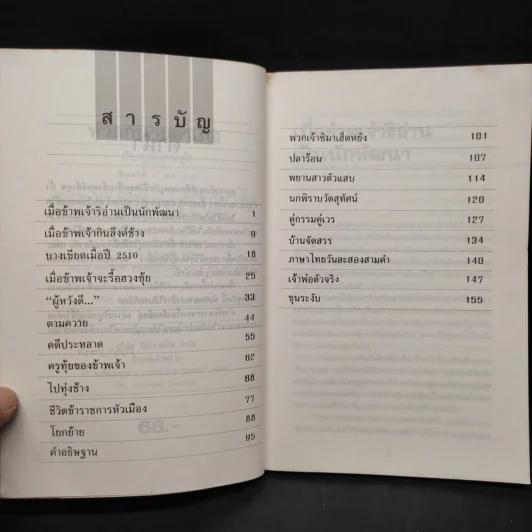 สารบัญ
เมื่อข้าพเจ้าริอ่านเป็นนักพัฒนา 1
เมื่อข้าพเจ้ากินสิงค์ช้าง 9
นางเขียดเมื่อปี 2510 18
เมื่อข้าพเจ้าจะรื้อฮวงซุ้ย 25
"ผู้หวังดี..." 33
ตามควาย 44
คดีประหลาด 55
ครูทุ้ยของข้าพเจ้า 62
ไปทุ่งช้าง 68
ชีวิตข้าราชการหัวเมือง 77
โยกย้าย 88
คำอธิษฐาน 95
พวกเจ้าซิมาเฮ็ดหยัง 101
ปลาร้อน 107
พยานสาวตัวแสบ 114
นกพิราบวัดสุทัศน์ 120
คู่กรรมคู่เวร 127
บ้านจัดสรร 134
ภาษาไทยวันละสองสามคำ 140
เจ้าพ่อตัวจริง 147
ขุนระงับ 155